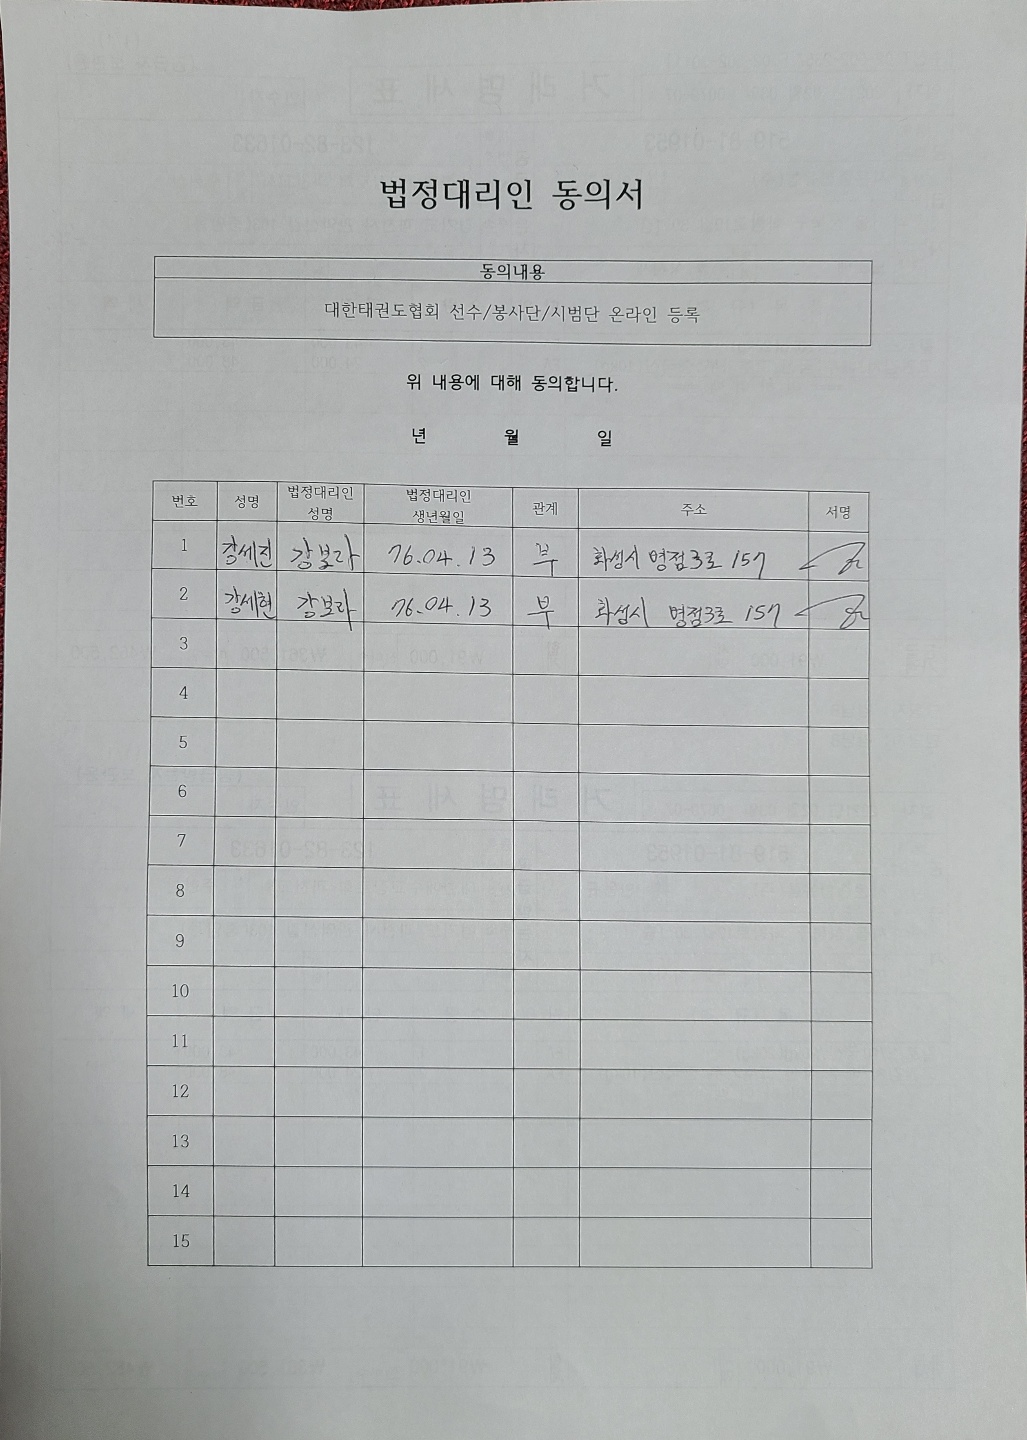 법정대리인 동의서
동의내용
대한태권도협회 선수/봉사단/시범단 온라인 등록
위 내용에 대해 동의합니다.
년 월 일
번호 성명 법정대리인 성명 법정대리인 생년월일 관계 주소 서명
1 강세진 강보라 76.04.13 부 화성시 병점3로 157
2 강세현 강보라 76.04.13 부 화성시 병점3로 157
3
4
5
6
7
8
9
10
11
12
13
14
15